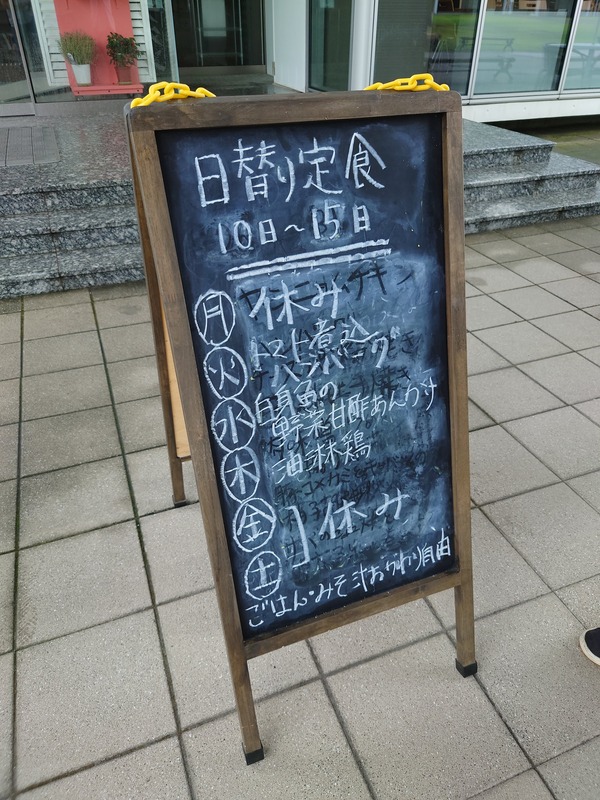 日替り定食
10日〜15日
月 休み
火 トマト煮込ハンバーグ
水 白身魚の野菜甘酢あんかけ
木 油淋鶏
金
土 ]休み
ごはん・みそ汁おかわり自由